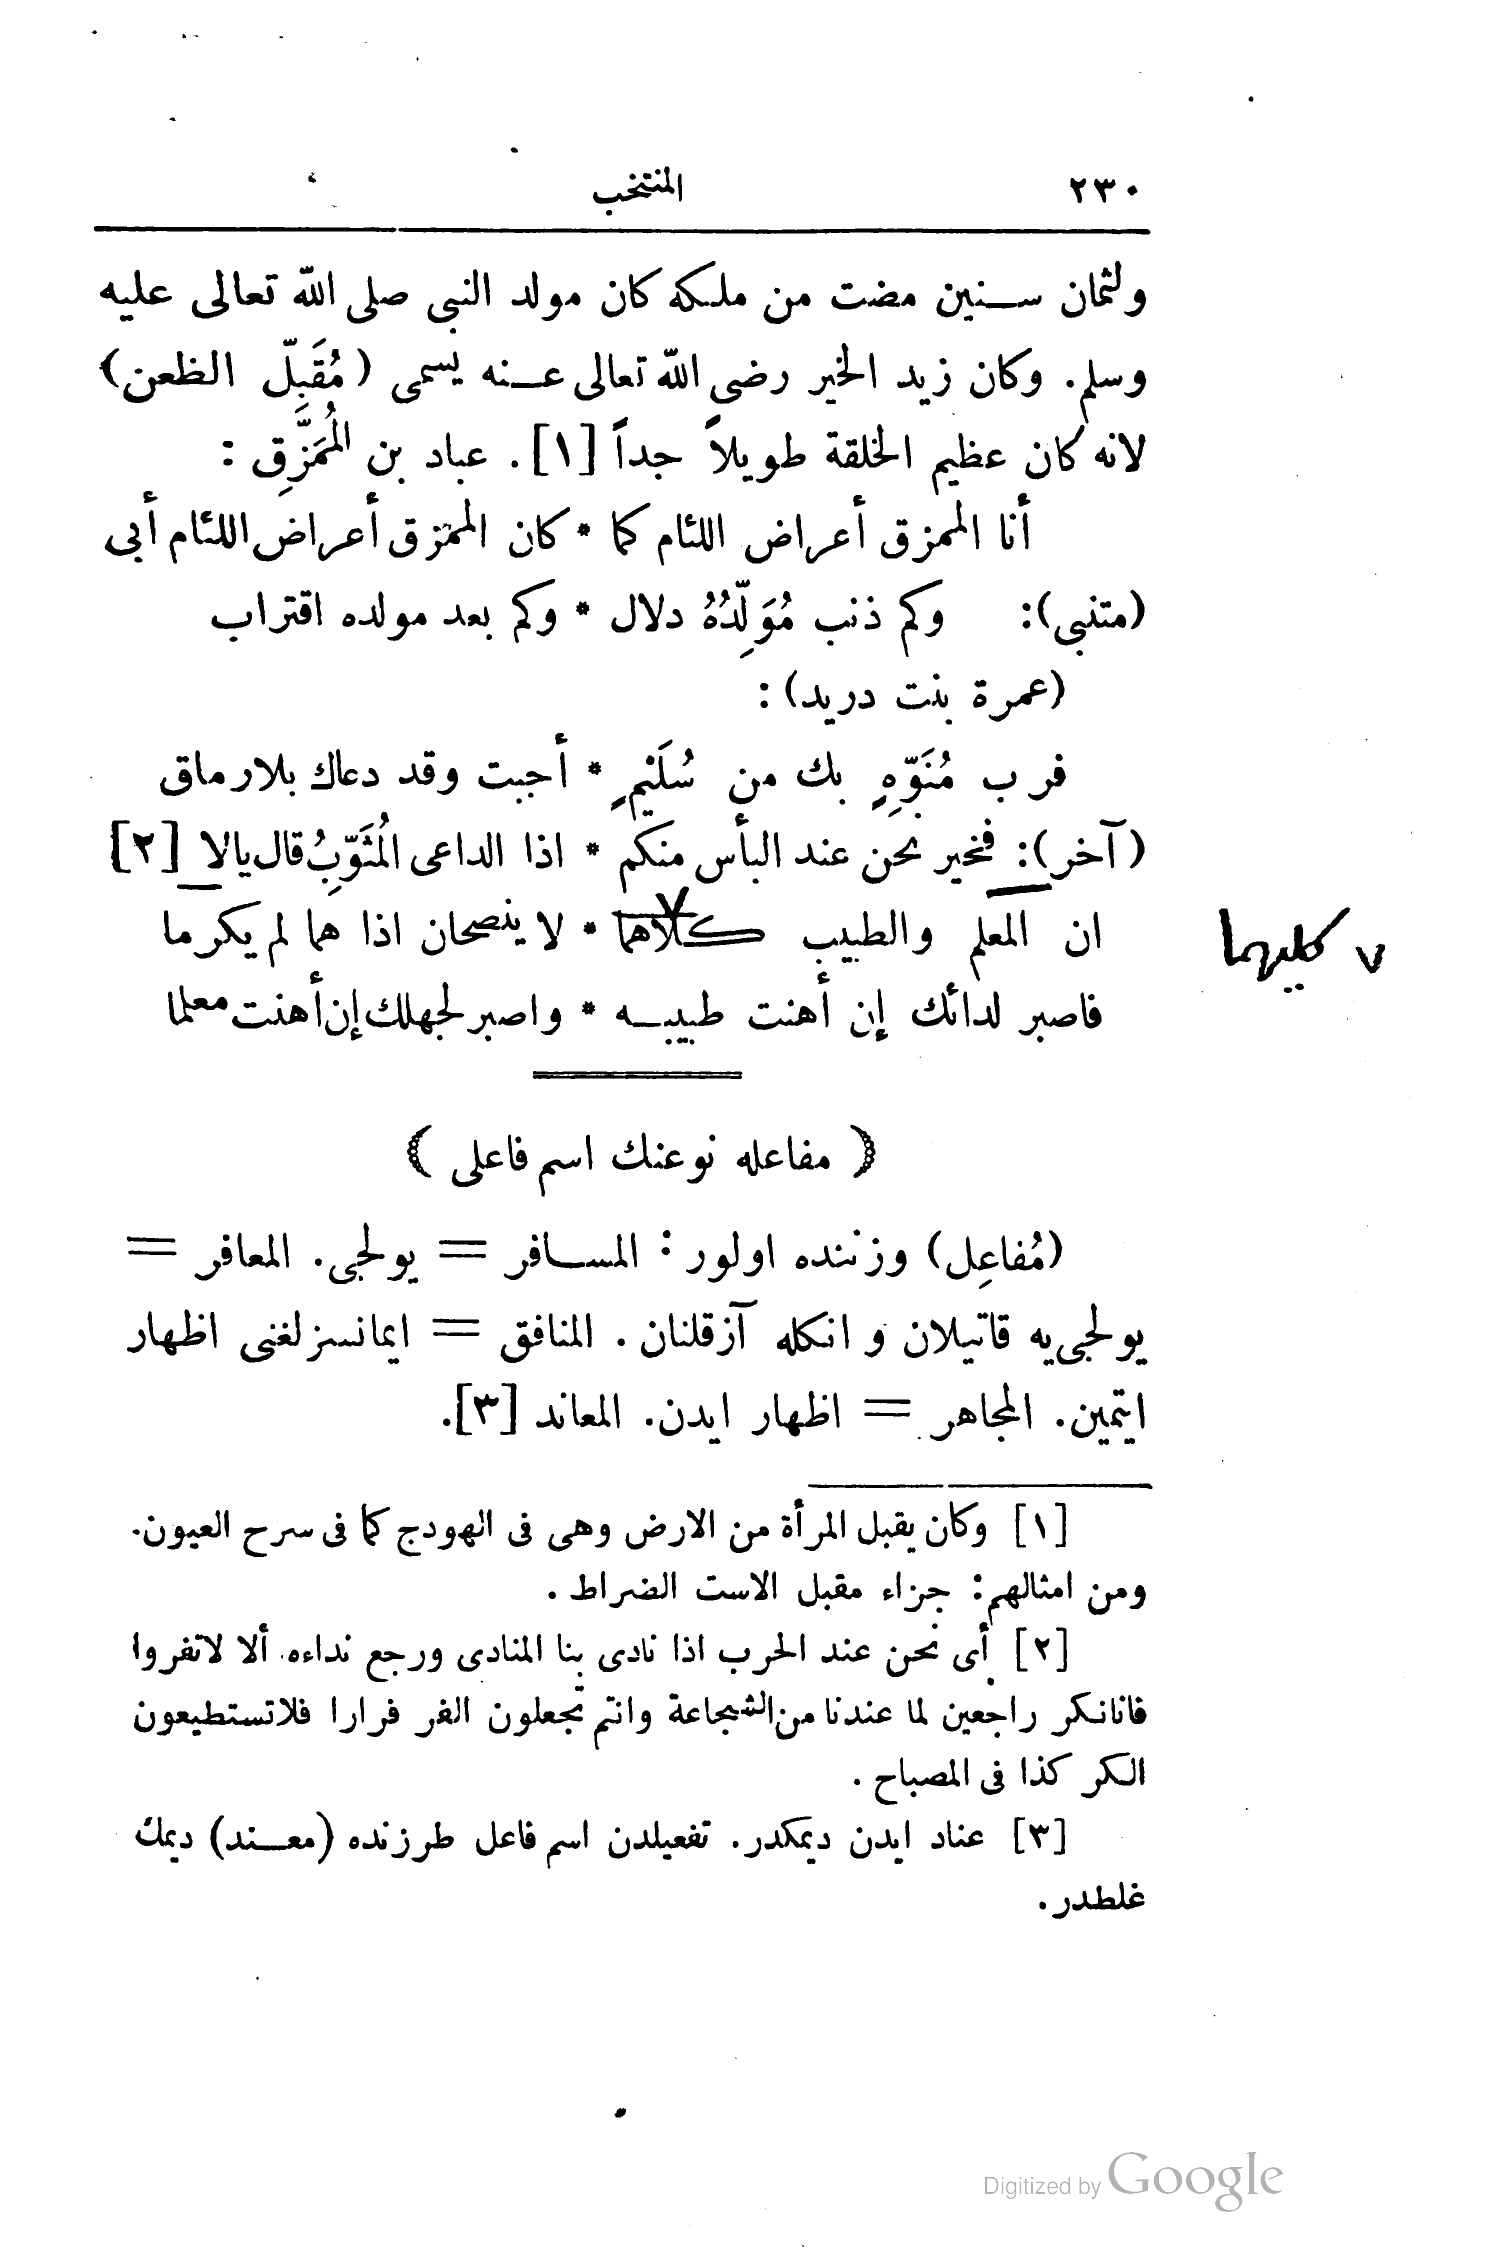 ٢٣٠ المنتخب
ولثمان سنين مضت من ملكه كان مولد النبى صلى الله تعالى عليه
وسلم. وكان زيد الخير رضى الله تعالى عنه يسمى (مُقَبِلّ الظعن)
لانه كان عظيم الخلقة طويلاً جداً [١]. عباد بن المُمَزَّقِ :
أنا الممزق أعراض اللئام كما * كان الممزق أعراض اللئام أبى
(متنبى): وكم ذنب مُوَلِّدُهُ دلال * وكم بعد مولده اقتراب
(عمرة بنت دريد) :
فرب مُنَوِّهٍ بك من سُلَيْمٍ * أجبت وقد دعاك بلا رماق
(آخر): فخير نحن عند البأس منكم * اذا الداعى المُثَوِّبُ قال يالا [٢]
ان المعلم والطبيب كلاهما * لا ينصحان اذا هما لم يكرما
٧ كليهما
فاصبر لدائك إن أهنت طبيبه * واصبر لجهلك إن أهنت معلما
( مفاعله نوعنك اسم فاعلى )
(مُفاعِل) وزننده اولور : المسافر = يولجى. المعافر =
يولجى يه قاتيلان و انكله آزقلنان . المنافق = ايمانسزلغنى اظهار
ايتمين. المجاهر = اظهار ايدن. المعاند [٣].
[١] وكان يقبل المرأة من الارض وهى فى الهودج كما فى سرح العيون.
ومن امثالهم: جزاء مقبل الاست الضراط .
[٢] أى نحن عند الحرب اذا نادى بنا المنادى ورجع نداءه ألا لاتفروا
فانانكر راجعين لما عندنا من الشجاعة وانتم تجعلون الفر فرارا فلاتستطيعون
الكر كذا فى المصباح .
[٣] عناد ايدن ديمكدر. تفعيلدن اسم فاعل طرزنده (معند) ديمك
غلطدر.
Digitized by Google